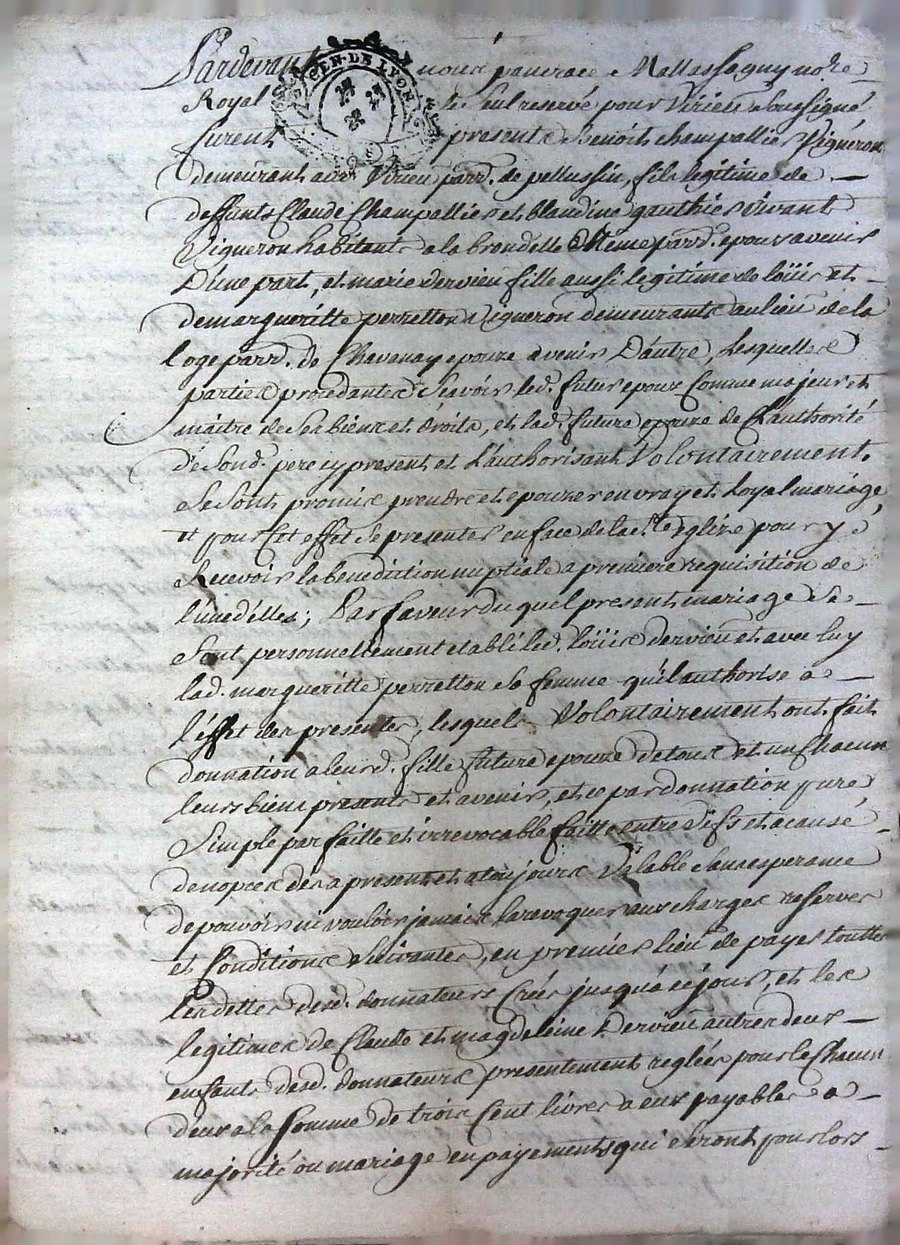 Pardevant nous pancrace Mallassagny no.re
GEN. DE LYON
Royal le seul reservé pour Virieu soussigné
furent presents Benoit champallier Vigneron
demeurant aud. Virieu parr. de pellussin, fils legitime de
deffunts Claude Champallier et blandine gauthier vivant
Vigneron habitants a la brondelle meme parr. epoux avenir
D'une part, et marie dervieu fille aussi legitime de loüis et
de margueritte perretton Vigneron demeurants au lieu de la
loge parr. de Chavenay epouze avenir D'autre, Lesquelles
parties procedantes sçavoir led. futur epoux comme majeur et
maitre de ses biens et droits, et lad. future epouze de l'authorité
de sond. pere cy present et L'authorisant Volontairement
se sont promis prendre et epouzer en vray et loyal mariage
et pour cet effet se presenter en face de la s.te eglise pour y
recevoir la benediction nuptiale a premiere requisition de
l'une d'elles; En faveur du quel present mariage se
sont personnellement etabli led. loüis dervieu et avec luy
lad. margueritte perretton sa femme qu'il authorise a
l'effet des presentes, lesquels Volontairement ont fait
donnation a leurd. fille future epouze de tous et un chacun
leurs biens presents et avenir, et ce par donnation pure
simple parfaitte et irrevocable faitte entre vifs et a cause
de nopces des a present et a toujours Valable sans esperance
de pouvoir ni vouloir jamais la revoquer aux charges reserves
et Conditions suivantes, en premier lieu de payer touttes
les dettes desd. donnateurs Crées jusqu'a ce jour, et les
legitimes de Claude et magdeleine Dervieu autres deux
enfants desd. donnateurs presentement reglées pour le Chacun
d'eux a la somme de trois Cent livres a eux payables a
majorité ou mariage en payements qui seront pour lors